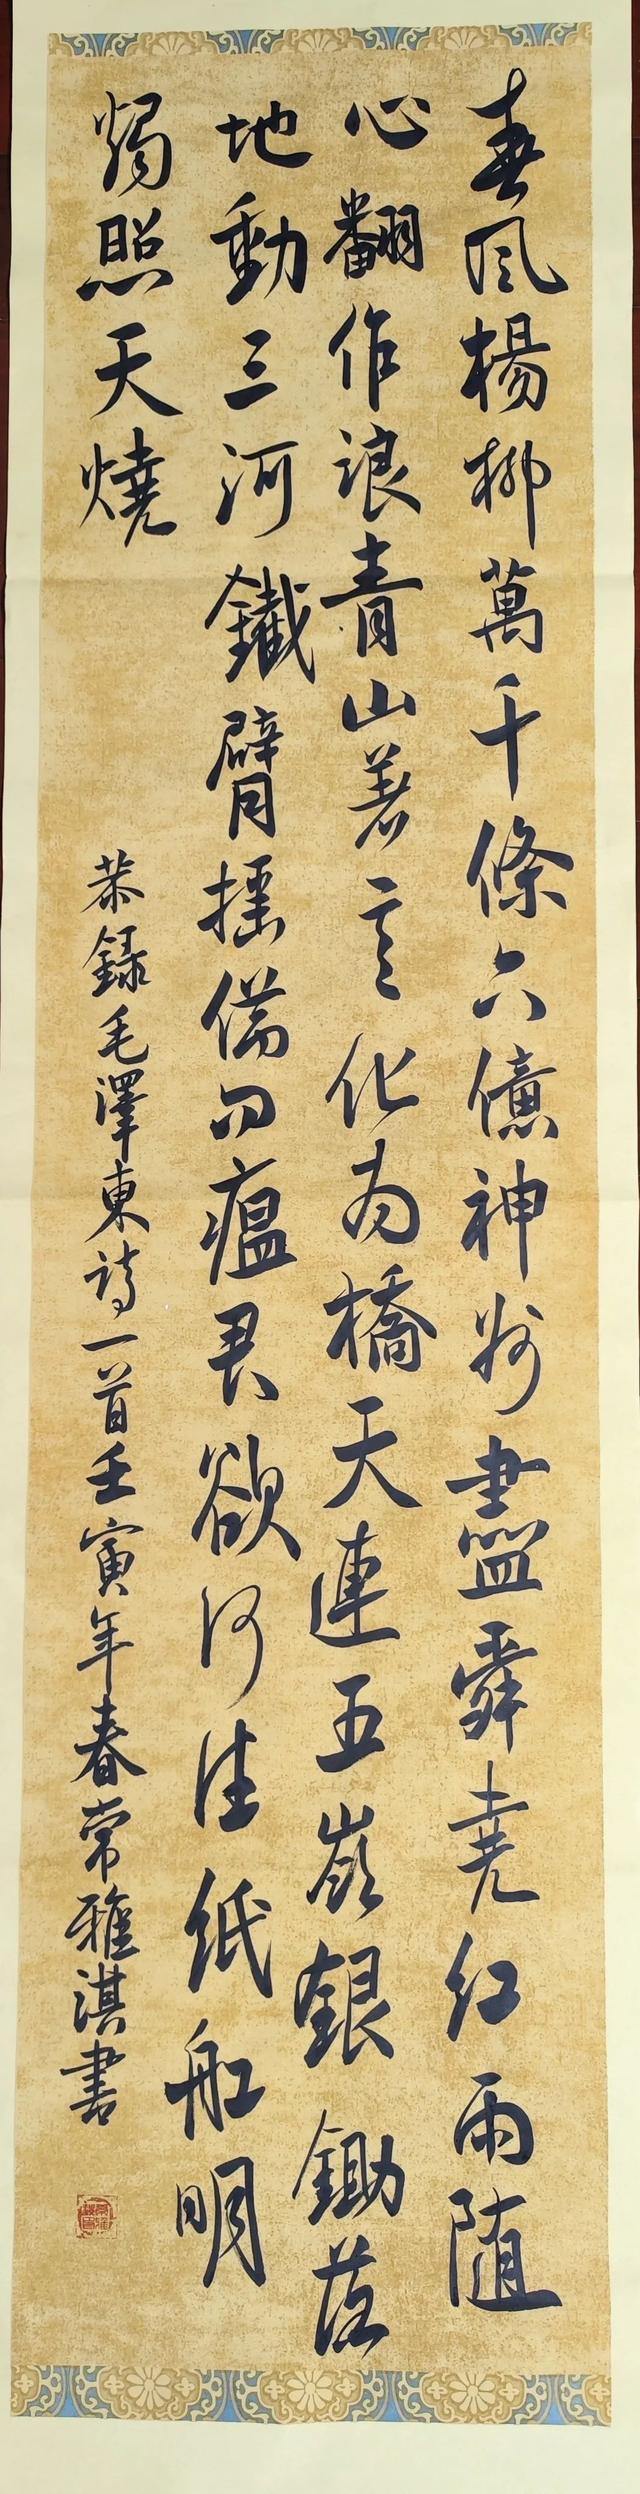 春風楊柳萬千條六億神州盡舜堯紅雨随
心翻作浪青山著意化為橋天連五嶺銀鋤落
地動三河鐵臂摇借问瘟君欲何往纸船明
燭照天燒
恭録毛澤東詩一首壬寅年春常雅淇書